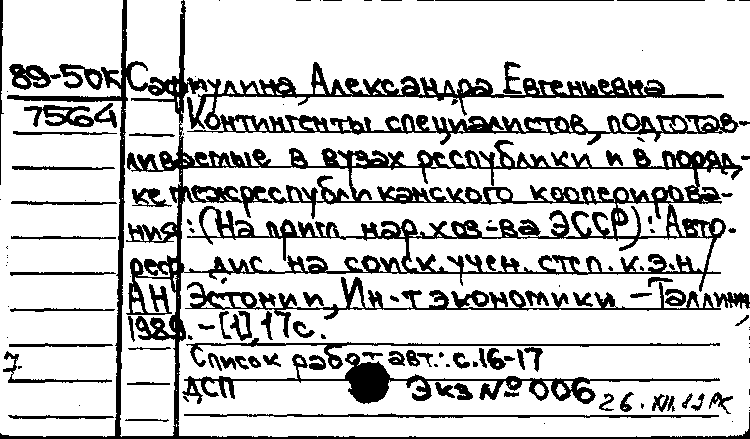 89-50К Сафиулина, Александра Евгеньевна
7564 Контингенты специалистов, подготав-
ливаемые в вузах республики и в поряд-
ке межреспубликанского кооперирова-
ния: (На прим. нар. хоз-ва ЭССР): Авто-
реф. дис. на соиск. учен. степ. к.э.н./
АН Эстонии, Ин-т экономики. - Таллинн,
1989. - [1], 17с.
Список работ авт.: с.16-17
7
ДСП Экз № 006 26.XII.89